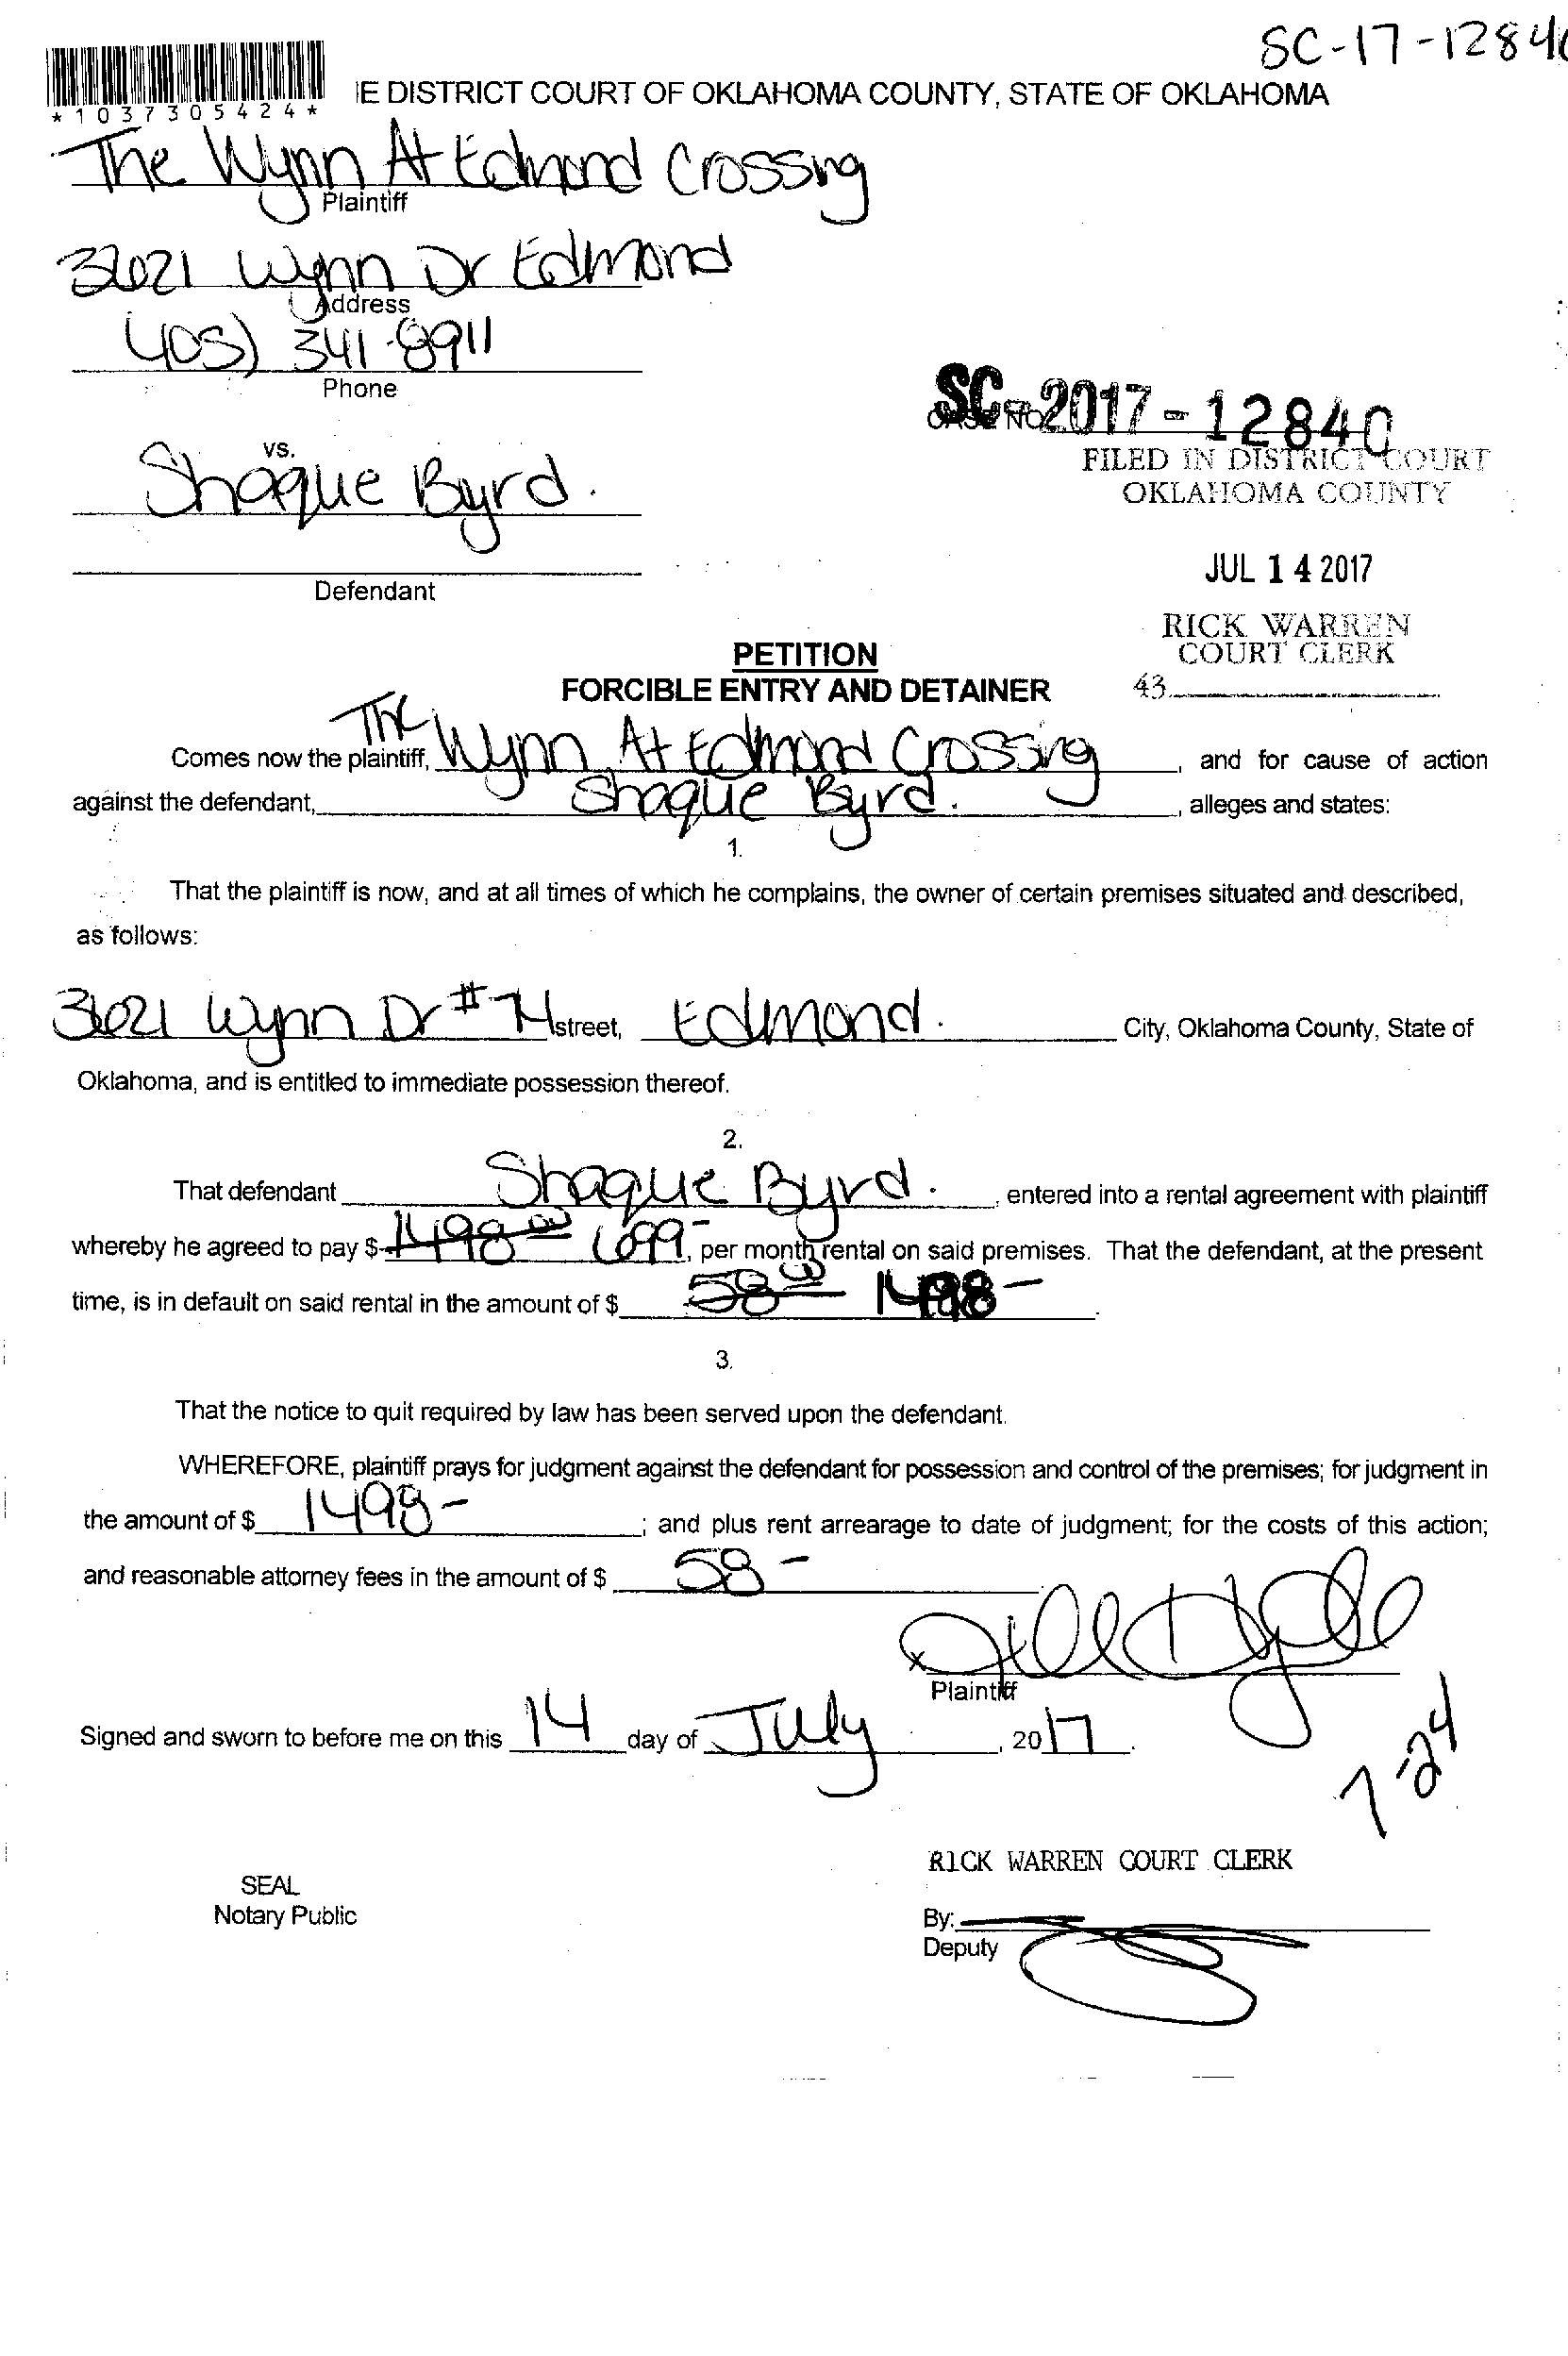 SC-17-1284
*1037305424*
IE DISTRICT COURT OF OKLAHOMA COUNTY, STATE OF OKLAHOMA
The Wynn At Edmond Crossing
Plaintiff
3621 Wynn Dr Edmond
Address
405) 341-8911
Phone
SC-2017-12840
CASE NO.
FILED IN DISTRICT COURT
OKLAHOMA COUNTY
vs.
Shaque Byrd.
Defendant
JUL 14 2017
RICK WARREN
COURT CLERK
43
PETITION
FORCIBLE ENTRY AND DETAINER
Comes now the plaintiff, The Wynn At Edmond Crossing, and for cause of action
against the defendant, Shaque Byrd., alleges and states:
1.
That the plaintiff is now, and at all times of which he complains, the owner of certain premises situated and described,
as follows:
3621 Wynn Dr # 74 street, Edmond. City, Oklahoma County, State of
Oklahoma, and is entitled to immediate possession thereof.
2.
That defendant Shaque Byrd., entered into a rental agreement with plaintiff
whereby he agreed to pay $ 1498 00 699-, per month rental on said premises. That the defendant, at the present
time, is in default on said rental in the amount of $ 58 00 1498-.
3.
That the notice to quit required by law has been served upon the defendant.
WHEREFORE, plaintiff prays for judgment against the defendant for possession and control of the premises; for judgment in
the amount of $ 1498-; and plus rent arrearage to date of judgment; for the costs of this action;
and reasonable attorney fees in the amount of $ 58-
x
Plaintiff
Signed and sworn to before me on this 14 day of July, 2017.
7-24
RICK WARREN COURT CLERK
SEAL
Notary Public
By:
Deputy